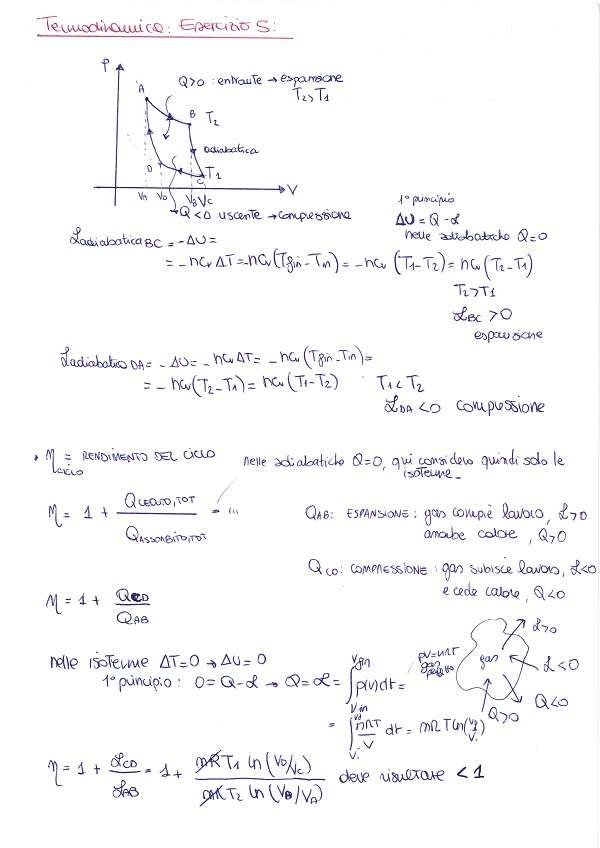 Termodinamica: Esercizio 5:
P
Q>0 : entrante → espansione
T2>T1
A
B T2
adiabatica
D
C T1
VA VD VB VC V
→ Q<0 uscente → compressione
1° principio
ΔU = Q - L
nelle adiabatiche Q=0
Ladiabatica BC = -ΔU =
= -ncv ΔT = -ncv (Tfin - Tin) = -ncv (T1-T2) = ncv (T2-T1)
T2>T1
LBC >0
espansione
Ladiabatica DA = -ΔU = -ncv ΔT = -ncv (Tfin - Tin) =
= -ncv (T2-T1) = ncv (T1-T2) T1<T2
LDA <0 compressione
• η = RENDIMENTO DEL CICLO
ciclo
nelle adiabatiche Q=0, qui considero quindi solo le
isoterme_
η = 1 + QCEDUTO,TOT / QASSORBITO,TOT = ...
QAB: ESPANSIONE: gas compie lavoro, L>0
assorbe calore, Q>0
QCD: COMPRESSIONE: gas subisce lavoro, L<0
e cede calore, Q<0
η = 1 + QCD / QAB
nelle isoterme ΔT=0 → ΔU=0
1° principio: 0 = Q-L → Q = L = ∫ Vin Vfin p(v)dt =
pV=nRT
gas perfetto
gas
L>0
L<0
Q<0
Q>0
= ∫ Vi Vf nRT/V dt = nRT ln(Vf/Vi)
η = 1 + LCD / LAB = 1 + nR T1 ln (VD/VC) / nR T2 ln (VB/VA) deve risultare <1